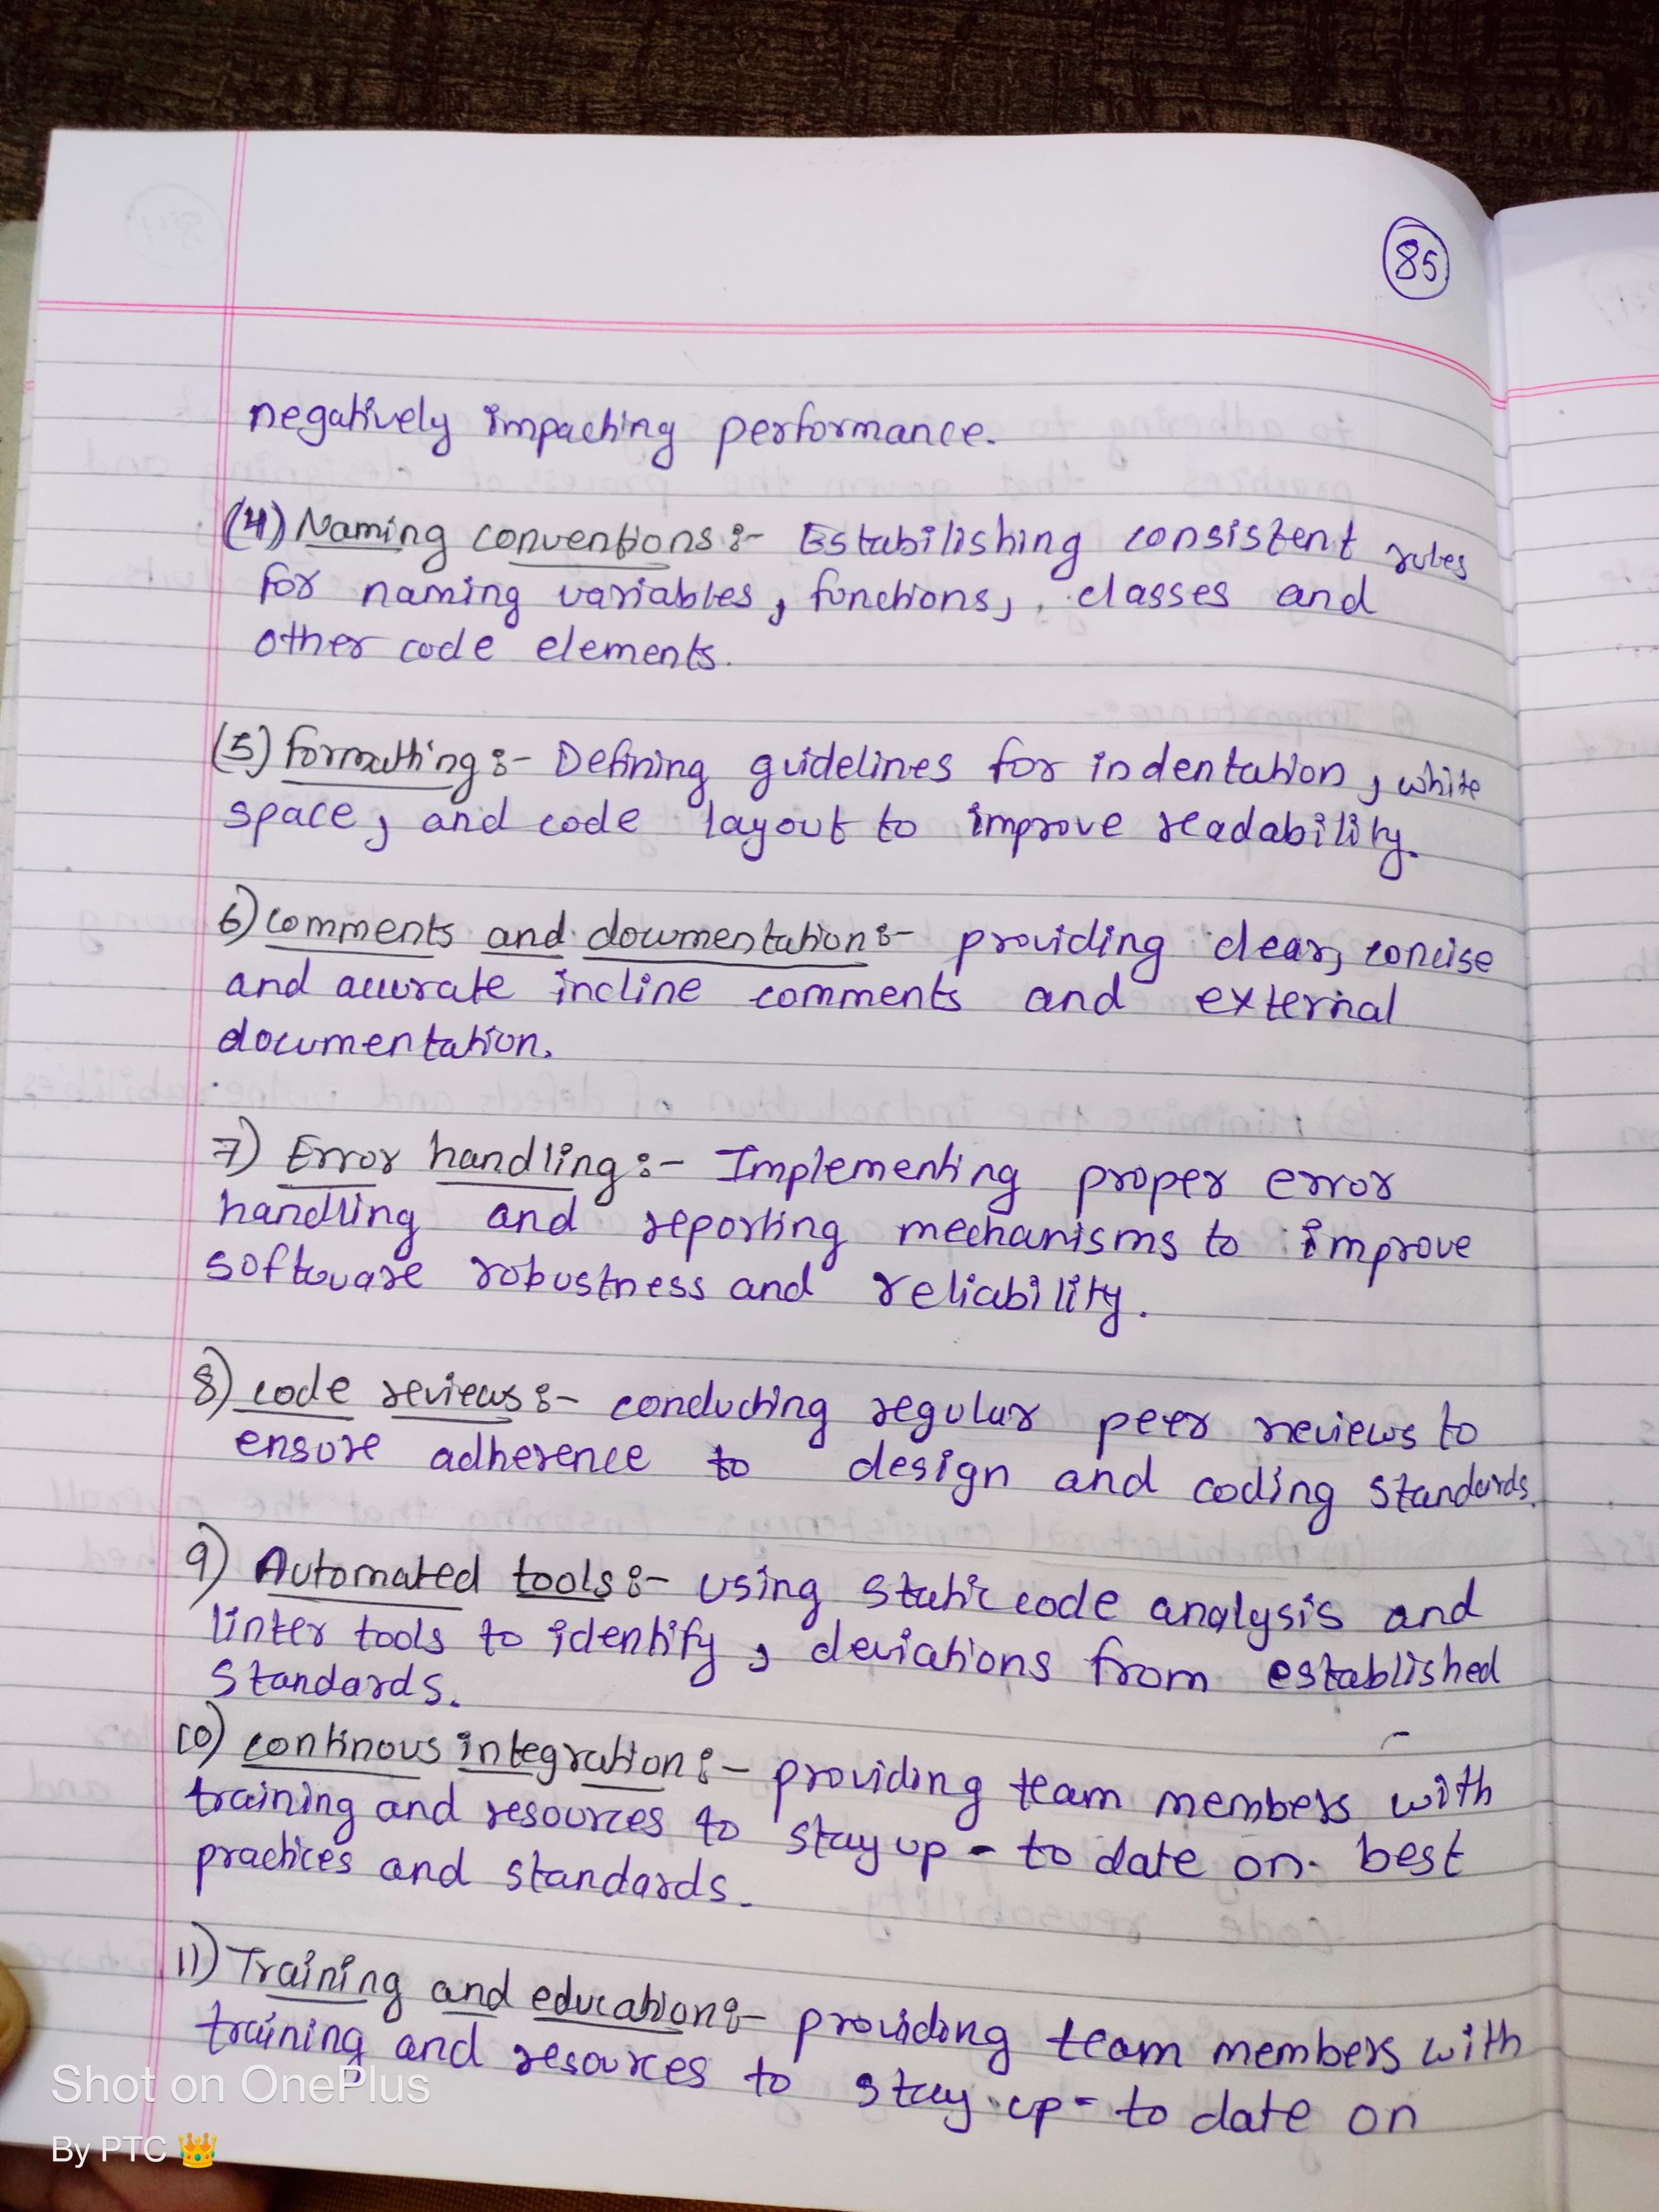 85
negatively impacting performance.
(4) Naming conventions :- Estabilishing consistent rules
for naming variables, functions, classes and
other code elements.
(5) formatting :- Defining guidelines for indentation, white
space, and code layout to improve readability.
6) comments and documentation :- providing clear, concise
and accurate incline comments and external
documentation.
7) Error handling :- Implementing proper error
handling and reporting mechanisms to improve
software robustness and reliability.
8) code reviews :- conducting regular peer reviews to
ensure adherence to design and coding standards.
9) Automated tools :- using static code analysis and
linter tools to identify, deviations from established
standards.
10) continous integration :- providing team members with
training and resources to stay up - to date on best
practices and standards.
11) Training and education :- providing team members with
training and resources to stay up - to date on
Shot on OnePlus
By PTC 👑